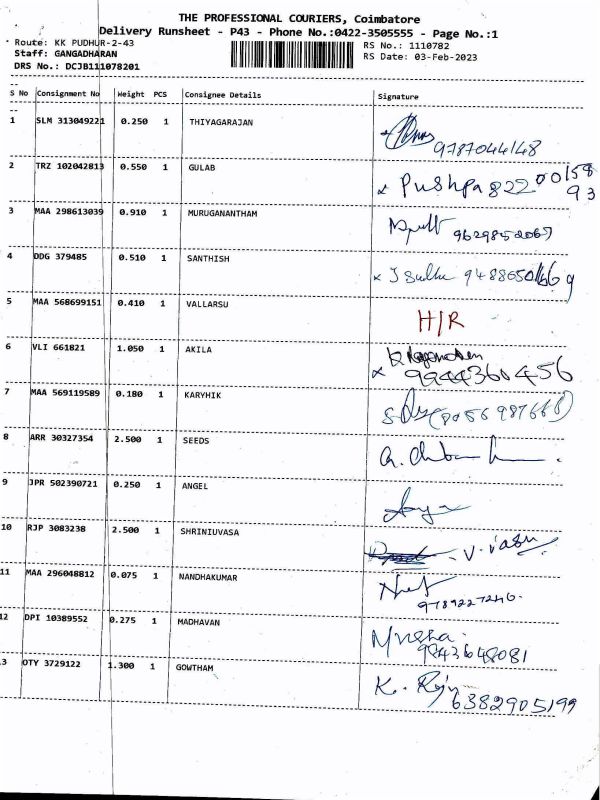 THE PROFESSIONAL COURIERS, Coimbatore
Delivery Runsheet - P43 - Phone No.:0422-3505555 - Page No.:1
Route: KK PUDHUR-2-43 RS No.: 1110782
Staff: GANGADHARAN RS Date: 03-Feb-2023
DRS No.: DCJB111078201
S No Consignment No Weight PCS Consignee Details Signature
1 SLM 313049221 0.250 1 THIYAGARAJAN
9787044148
2 TRZ 102042813 0.550 1 GULAB
x Pushpa 822 00158
93
3 MAA 298613039 0.910 1 MURUGANANTHAM
9629852067
4 DDG 379485 0.510 1 SANTHISH
x
5 MAA 568699151 0.410 1 VALLARSU
H/R
6 VLI 661821 1.050 1 AKILA
x 9944360456
7 MAA 569119589 0.180 1 KARYHIK
8 ARR 30327354 2.500 1 SEEDS
9 JPR 502390721 0.250 1 ANGEL
10 RJP 3083238 2.500 1 SHRINIUVASA
V. Vasu
11 MAA 296048812 0.075 1 NANDHAKUMAR
9789227246
12 DPI 10389552 0.275 1 MADHAVAN
9843648081
3 OTY 3729122 1.300 1 GOWTHAM
K. Raju
6382905199